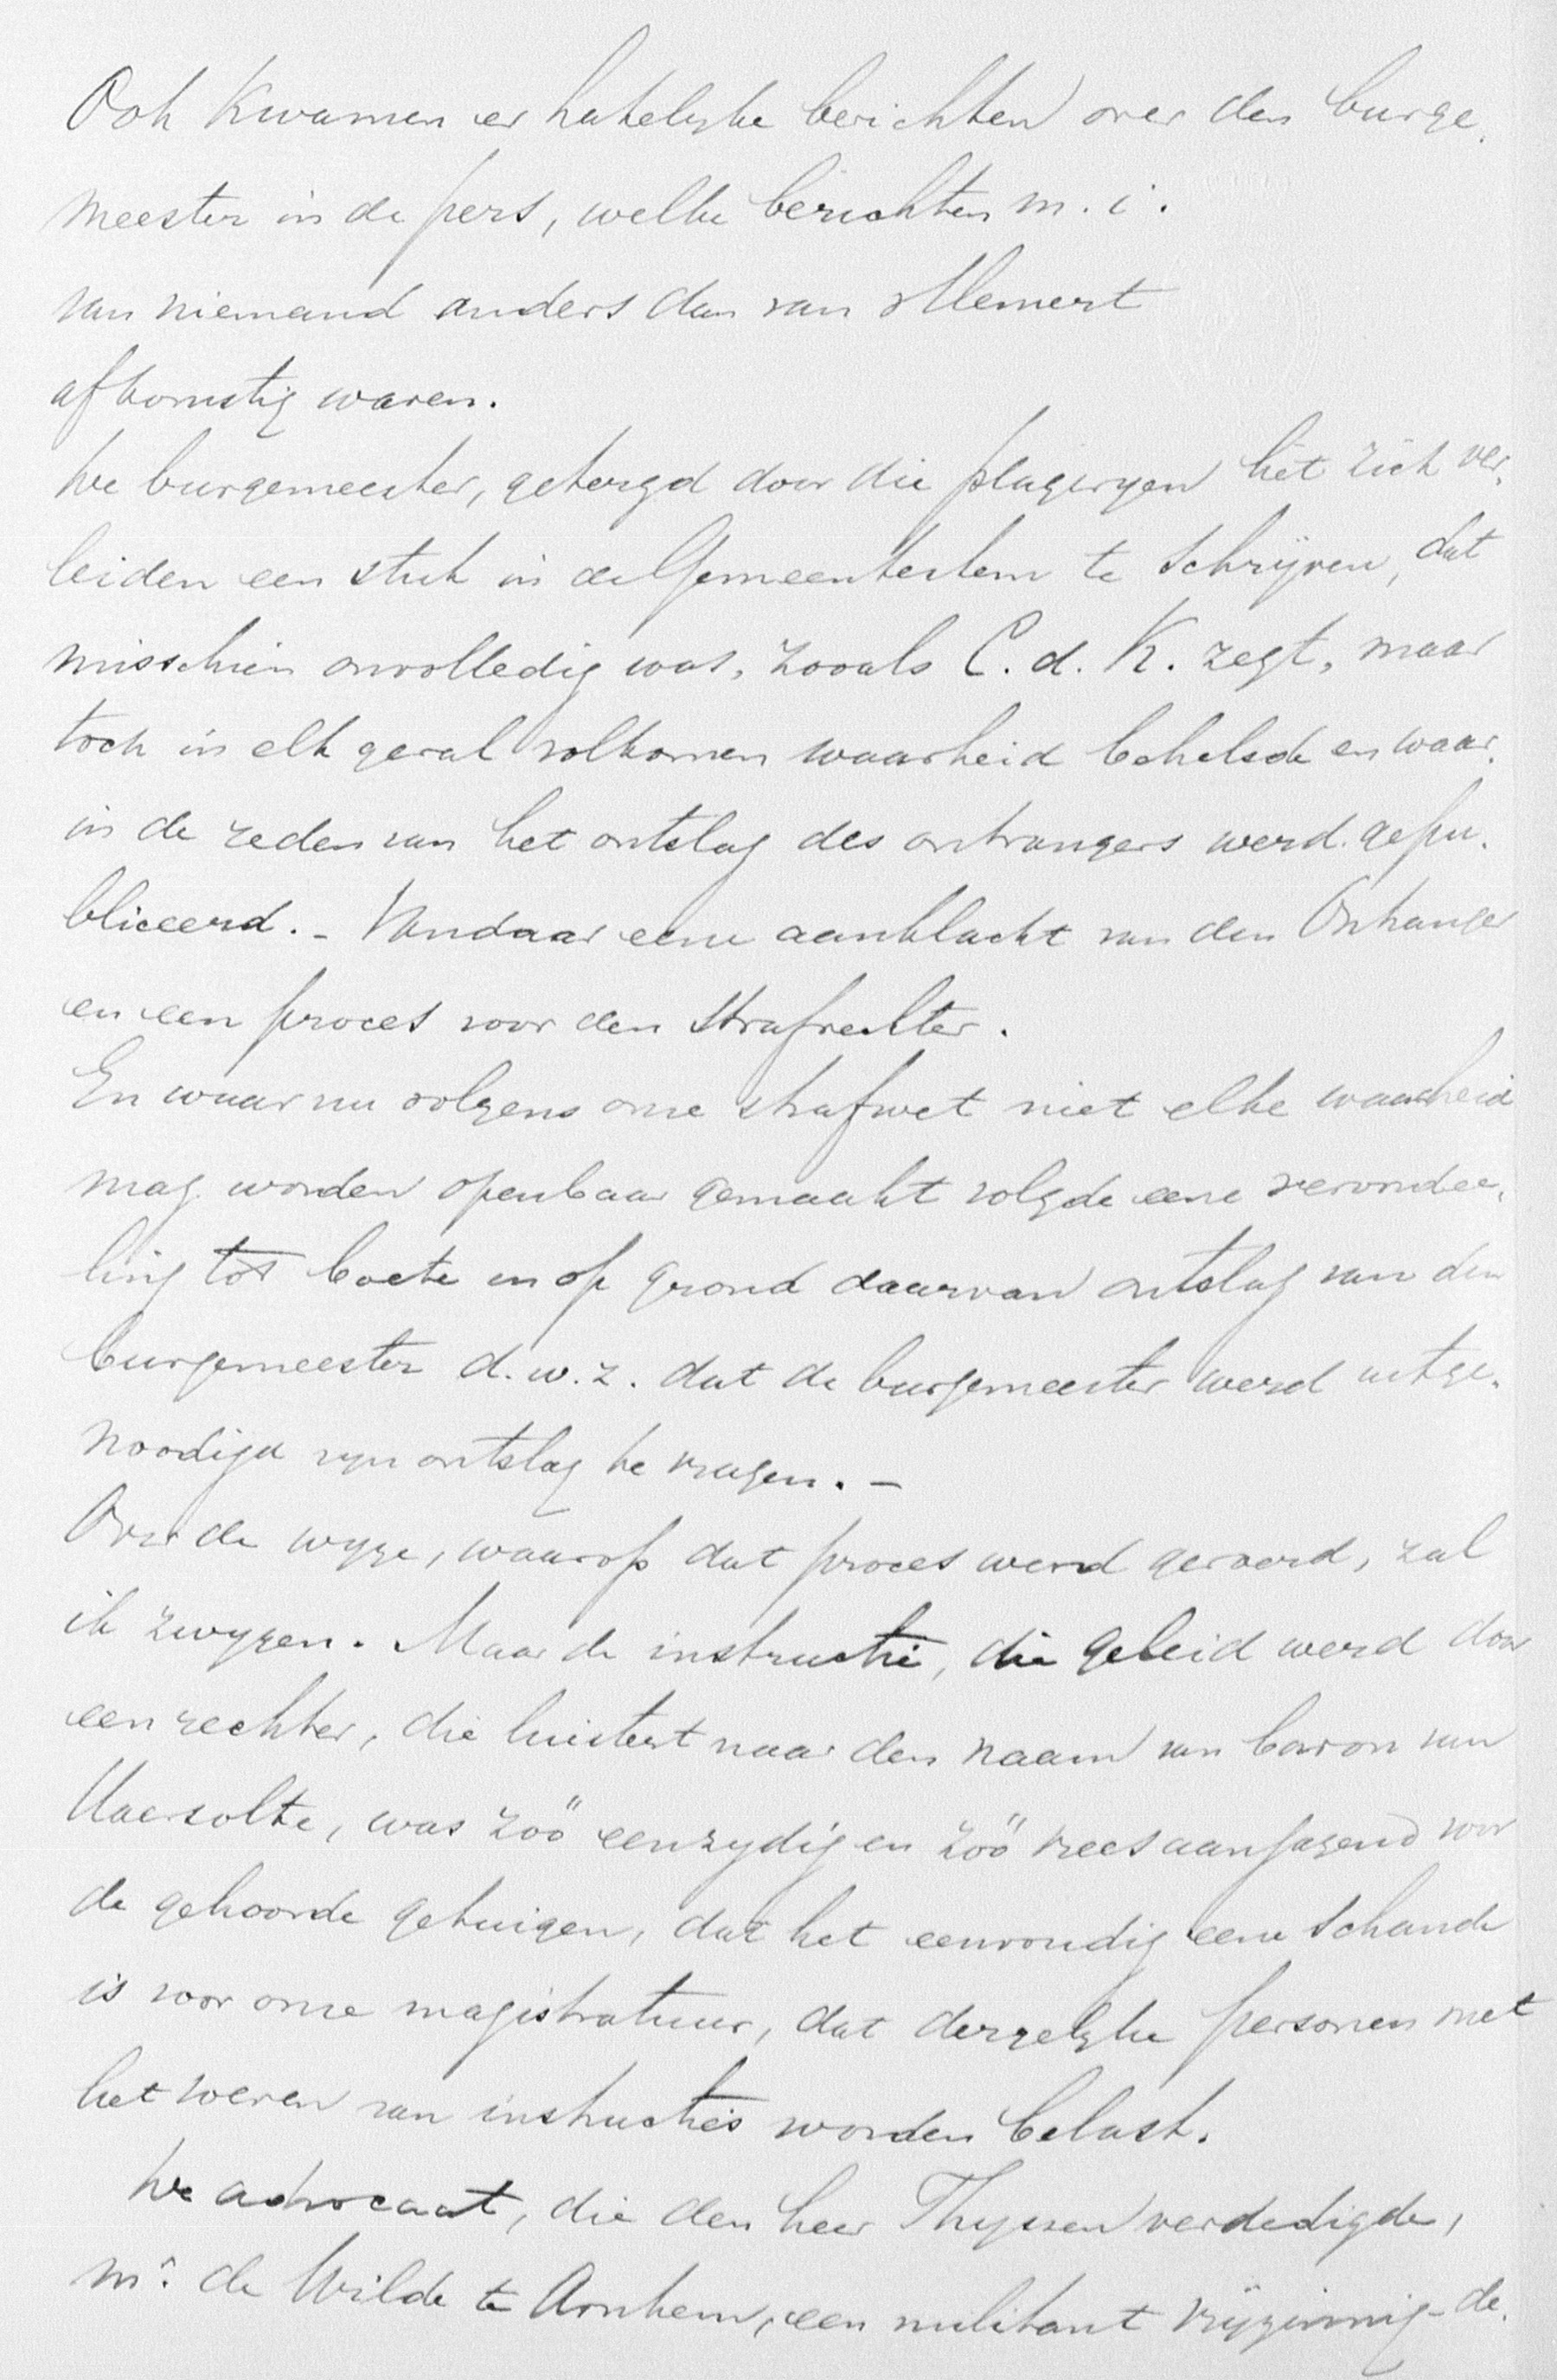 Ook kwamen er hatelyke berichten over den burge-
meester in de pers, welke berichten m. i.
van niemand anders dan van Memert
afkomstig waren.
De burgemeester, getergd door die plageryen liet zich ver-
leiden een stuk in de Gemeentestem te schrijven, dat
misschien onvolledig was, zooals C. d. K. zegt, maar
toch in elk geval volkomen waarheid behelsde en waar-
in de reden van het ontslag des ontvangers werd gepu-
bliceerd. - Vandaar eene aanklacht van den Ontvanger
en een proces voor den strafrechter.
En waar nu volgens onze strafwet niet elke waarheid
mag worden openbaar gemaakt volgde eene veroordee-
ling tot boete en op grond daarvan ontslag van den
burgemeester d. w. z. dat de burgemeester werd uitge-
noodigd zyn ontslag te vragen. -
Over de wyze, waarop dat proces werd gevoerd, zal
ik zwygen. Maar de instructie, die geleid werd door
een rechter, die luistert naar den naam van baron van
Haersolte, was zóó eenzydig en zóó vreesaanjagend voor
de gehoorde getuigen, dat het eenvoudig eene schande
is voor onze magistratuur, dat dergelyke personen met
het voeren van instructies worden belast.
De advocaat, die den heer Thyssen verdedigde,
mr. de Wilde te Arnhem, een militant vrijzinnig-de-